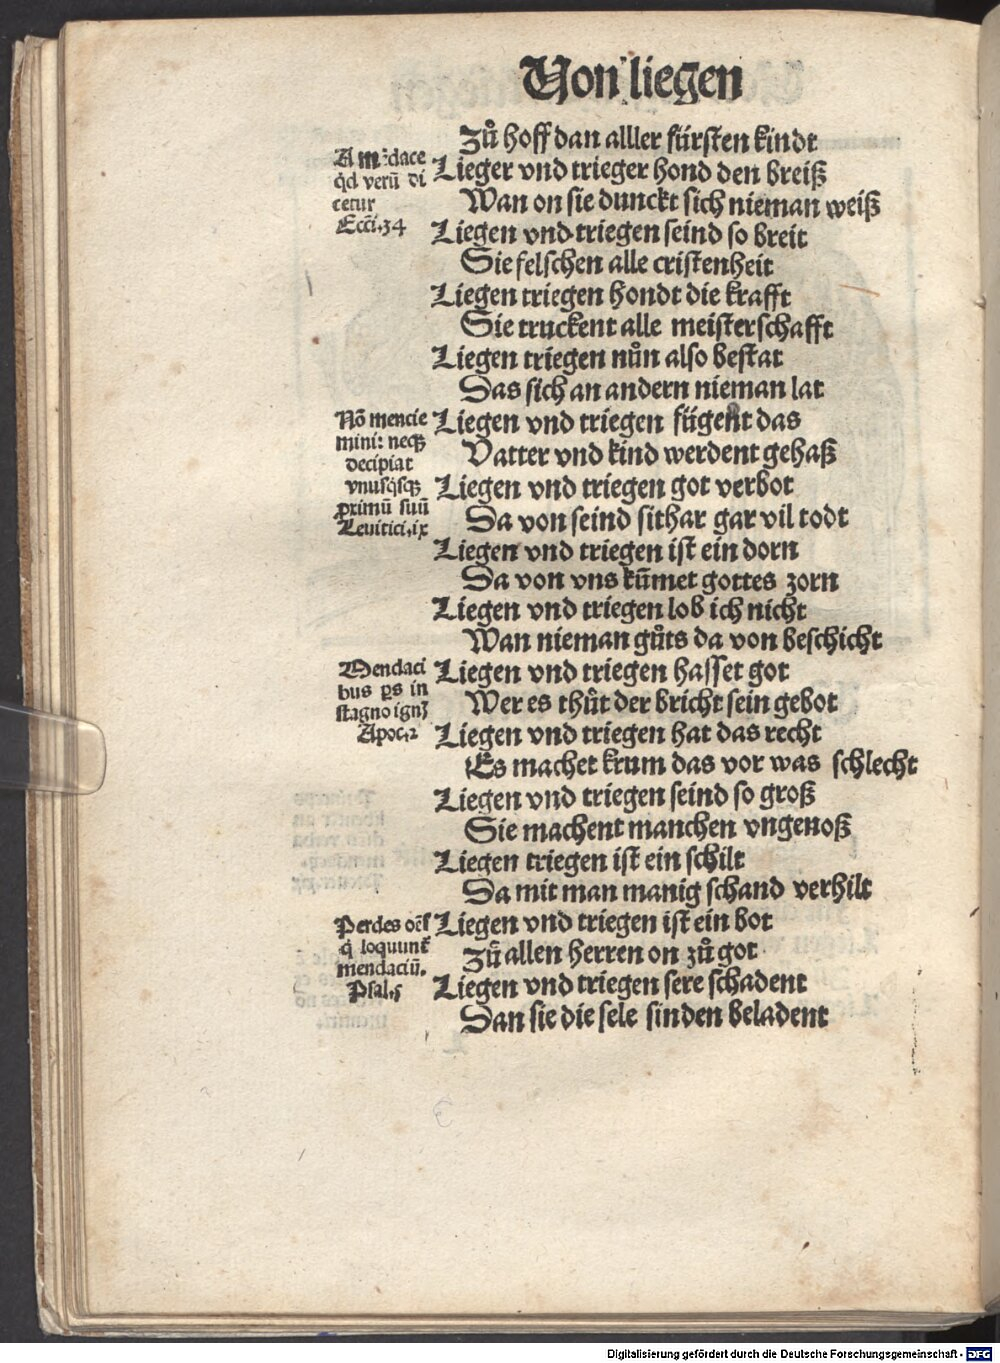 Von liegen
Zů hoff dan alller fürsten kindt
Lieger vnd trieger hond den breiß
Wan on sie dunckt sich nieman weiß
Liegen vnd triegen seind so breit
Sie felschen alle cristenheit
Liegen triegen hondt die krafft
Sie truckent alle meisterschafft
Liegen triegen nůn also bestat
Das sich an andern nieman lat
Liegen vnd triegen fügent das
Vatter vnd kind werdent gehaß
Liegen vnd triegen got verbot
Da von seind sithar gar vil todt
Liegen vnd triegen ist ein dorn
Da von vns kūmet gottes zorn
Liegen vnd triegen lob ich nicht
Wan nieman gůts da von beschicht
Liegen vnd triegen hasset got
Wer es thůt der bricht sein gebot
Liegen vnd triegen hat das recht
Es machet krum das vor was schlecht
Liegen vnd triegen seind so groß
Sie machent manchen vngenoß
Liegen triegen ist ein schilt
Da mit man manig schand verhilt
Liegen vnd triegen ist ein bot
Zů allen herren on zů got
Liegen vnd triegen sere schadent
Dan sie die sele sinden beladent
A mēdace
qd verū di
cetur
Ecci. 34
Nō mencie
mini: neqꝫ
decipiat
vnusqsqꝫ
ꝓximū suū
Leuitici. ix
Mendaci
bus ꝑs in
stagno ignꝫ
Apoc. 2
Perdes oēs
q̄ loquunt
mendaciū.
Psal. 5
Digitalisierung gefördert durch die Deutsche Forschungsgemeinschaft - DFG